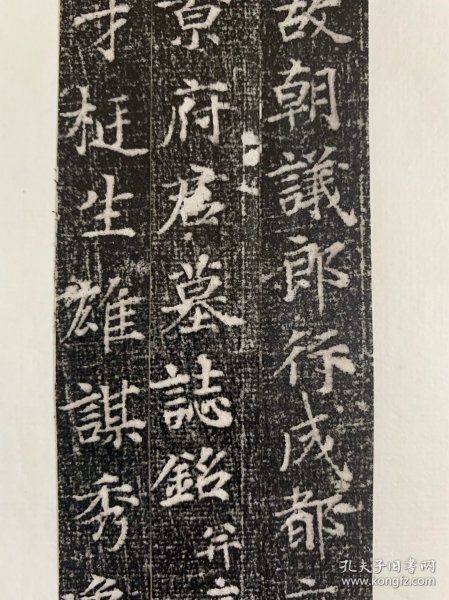 故朝議郎行成都
京府君墓誌銘并
才挺生雄謀秀
孔夫子旧书网
www.kongfz.com